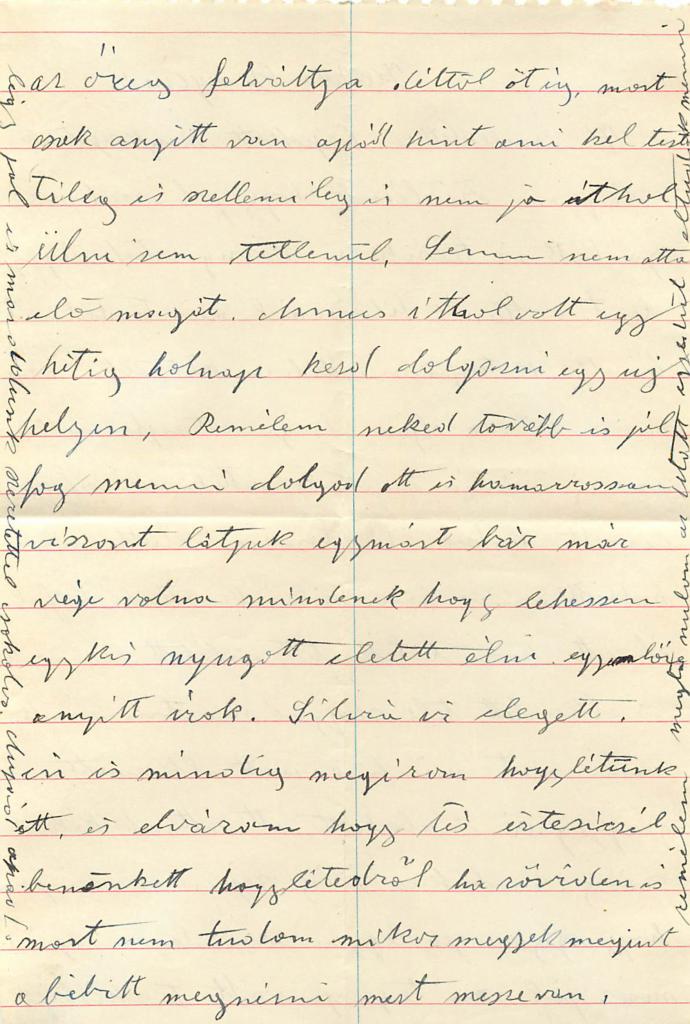 az öreg felváltja .littöl ötig, most
csak anyitt van apád kint ami kel testi
tileg is szellemileg is nem jo itthol
Ülni sem tétlenül, Semmi nem atta
elö magát. itthol volt egy
hétig holnap kezd dolgozni egy uj
helyen, Remélem neked tovább is jól
fog menni dolgod ott is hamarrossan
viszont látjuk egymást bár már
vége volna mindenek hogy lehessen
egy kis nyugott eletett élni.
anyitt irok. Silvia is elegett.
én is mindig megirom hogylétünk
ött, és elvárom hogy tés értesicsél
benünkett hogylétedröl ha röviden is
most nem tudom mikor megyek megint
a bébitt megnézni mert messze van,
remélem megta nulom az utott
légy jol is maradblunk szeretettel csokolva. Anyád apád.